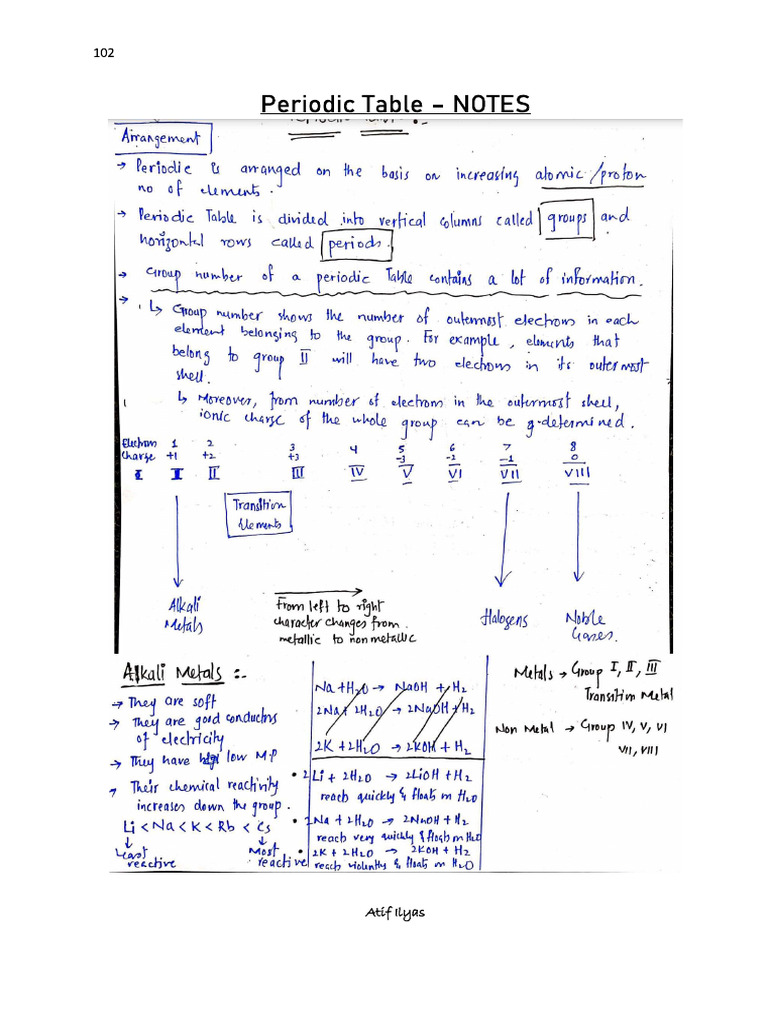 102
Periodic Table – NOTES
Arrangement
→ Periodic is arranged on the basis on increasing atomic/proton
no of elements.
→ Periodic Table is divided into vertical columns called groups and
horizontal rows called periods.
→ Group number of a periodic Table contains a lot of information.
→ ↳ Group number shows the number of outermost electrons in each
element belonging to the group. For example, elements that
belong to group II will have two electrons in its outermost
shell.
↳ Moreover, from number of electrons in the outermost shell,
ionic charge of the whole group can be determined.
Electrons 1 2 3 4 5 6 7 8
Charge +1 +2 +3 -3 -2 -1 0
I I II III IV V VI VII VIII
Transition
Elements
Alkali
Metals
From left to right
character changes from
metallic to non metallic
Halogens
Noble
Gases.
Alkali Metals :-
→ They are soft
→ They are good conductors
of electricity
→ They have low M.P
→ Their chemical reactivity
increases down the group.
Li < Na < K < Rb < Cs
Least
reactive
Most
reactive
Na + H2O → NaOH + H2
2Na + 2H2O → 2NaOH + H2
2K + 2H2O → 2KOH + H2
• 2Li + 2H2O → 2LiOH + H2
reach quickly & floats on H2O
• 2Na + 2H2O → 2NaOH + H2
reach very quickly & floats on H2O
• 2K + 2H2O → 2KOH + H2
reach violently & floats on H2O
Metals → Group I, II, III
Transition Metal
Non Metal → Group IV, V, VI
VII, VIII
Atif Ilyas